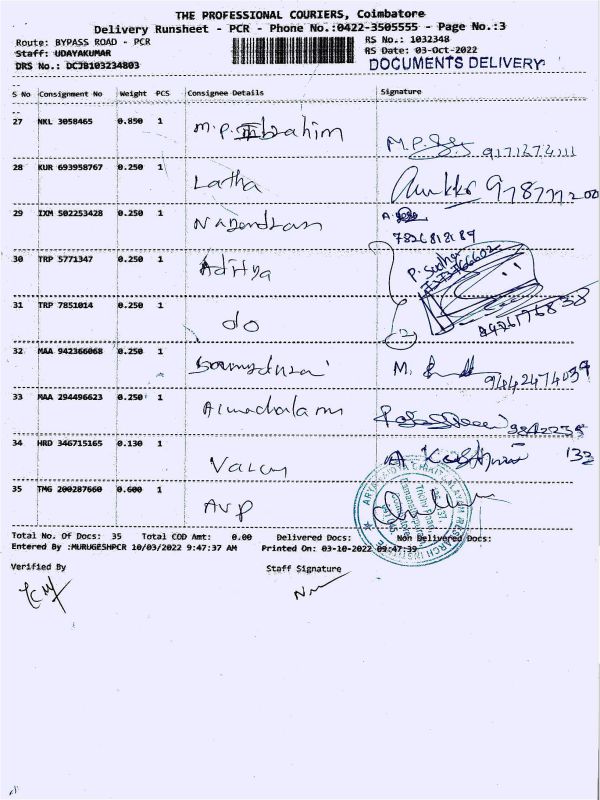 THE PROFESSIONAL COURIERS, Coimbatore
Delivery Runsheet - PCR - Phone No.:0422-3505555 - Page No.:3
Route: BYPASS ROAD - PCR
RS No.: 1032348
Staff: UDAYAKUMAR
RS Date: 03-Oct-2022
DRS No.: DCJB103234803
DOCUMENTS DELIVERY
S No Consignment No Weight PCS Consignee Details Signature
27 NKL 3058465 0.850 1 M.P. Ibrahim
M.P. 9171674111
28 KUR 693958767 0.250 1 Latha
29 IXM 502253428 0.250 1 Nagendran
A.
7826818189
30 TRP 5771347 0.250 1 Aditya
P. Sudha
7373766602
31 TRP 7851014 0.250 1 do
2
32 MAA 942366068 0.250 1
M. 9442474039
33 MAA 294496623 0.250 1 Arunachalam
34 HRD 346715165 0.130 1
A 132
35 TMG 200287660 0.600 1 AVP
Total No. Of Docs: 35 Total COD Amt: 0.00 Delivered Docs: Non Delivered Docs:
Entered By :MURUGESHPCR 10/03/2022 9:47:37 AM Printed On: 03-10-2022 09:47:39
Verified By Staff Signature